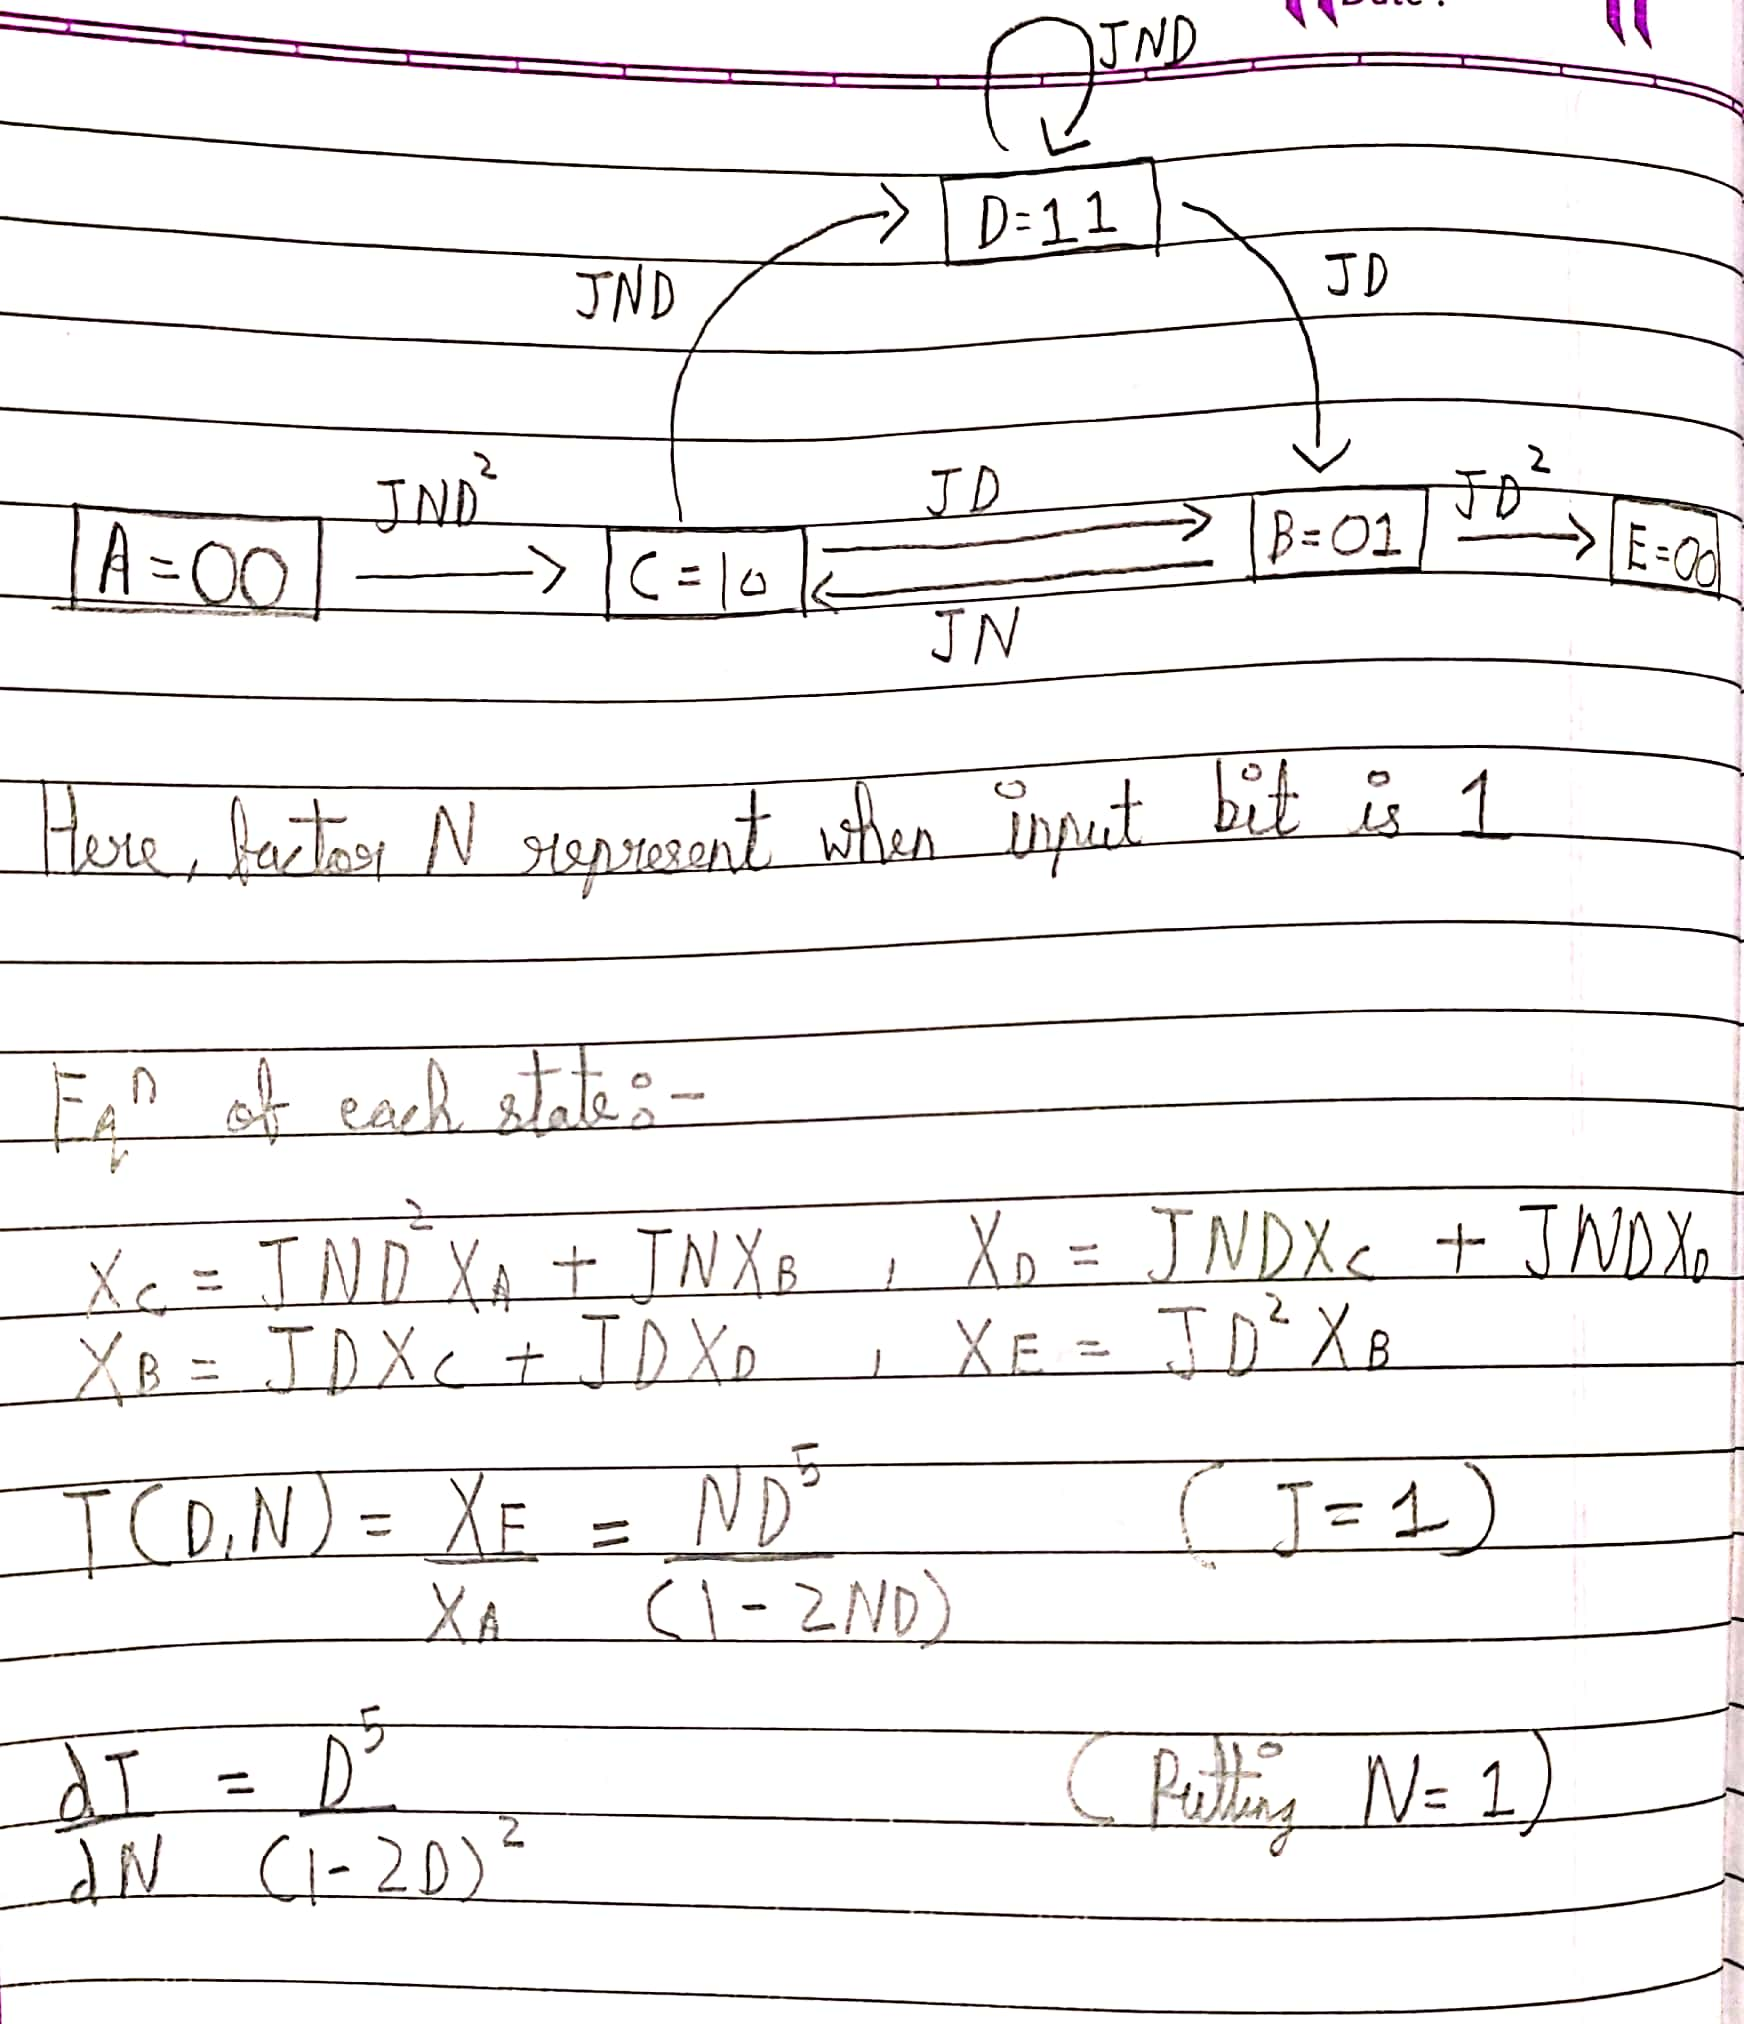 Date :
JND
D=11
JND
JD
JND²
JD
JD²
A=00
C=10
B=01
E=00
JN
Here, factor N represent when input bit is 1
Eqⁿ of each state:-
X_C = JND²X_A + JNX_B , X_D = JNDX_C + JNDX_D
X_B = JDX_C + JDX_D , X_E = JD²X_B
T(D,N) = X_E/X_A = ND⁵/(1-2ND) (J=1)
dT/dN = D⁵/(1-2D)² (Putting N=1)